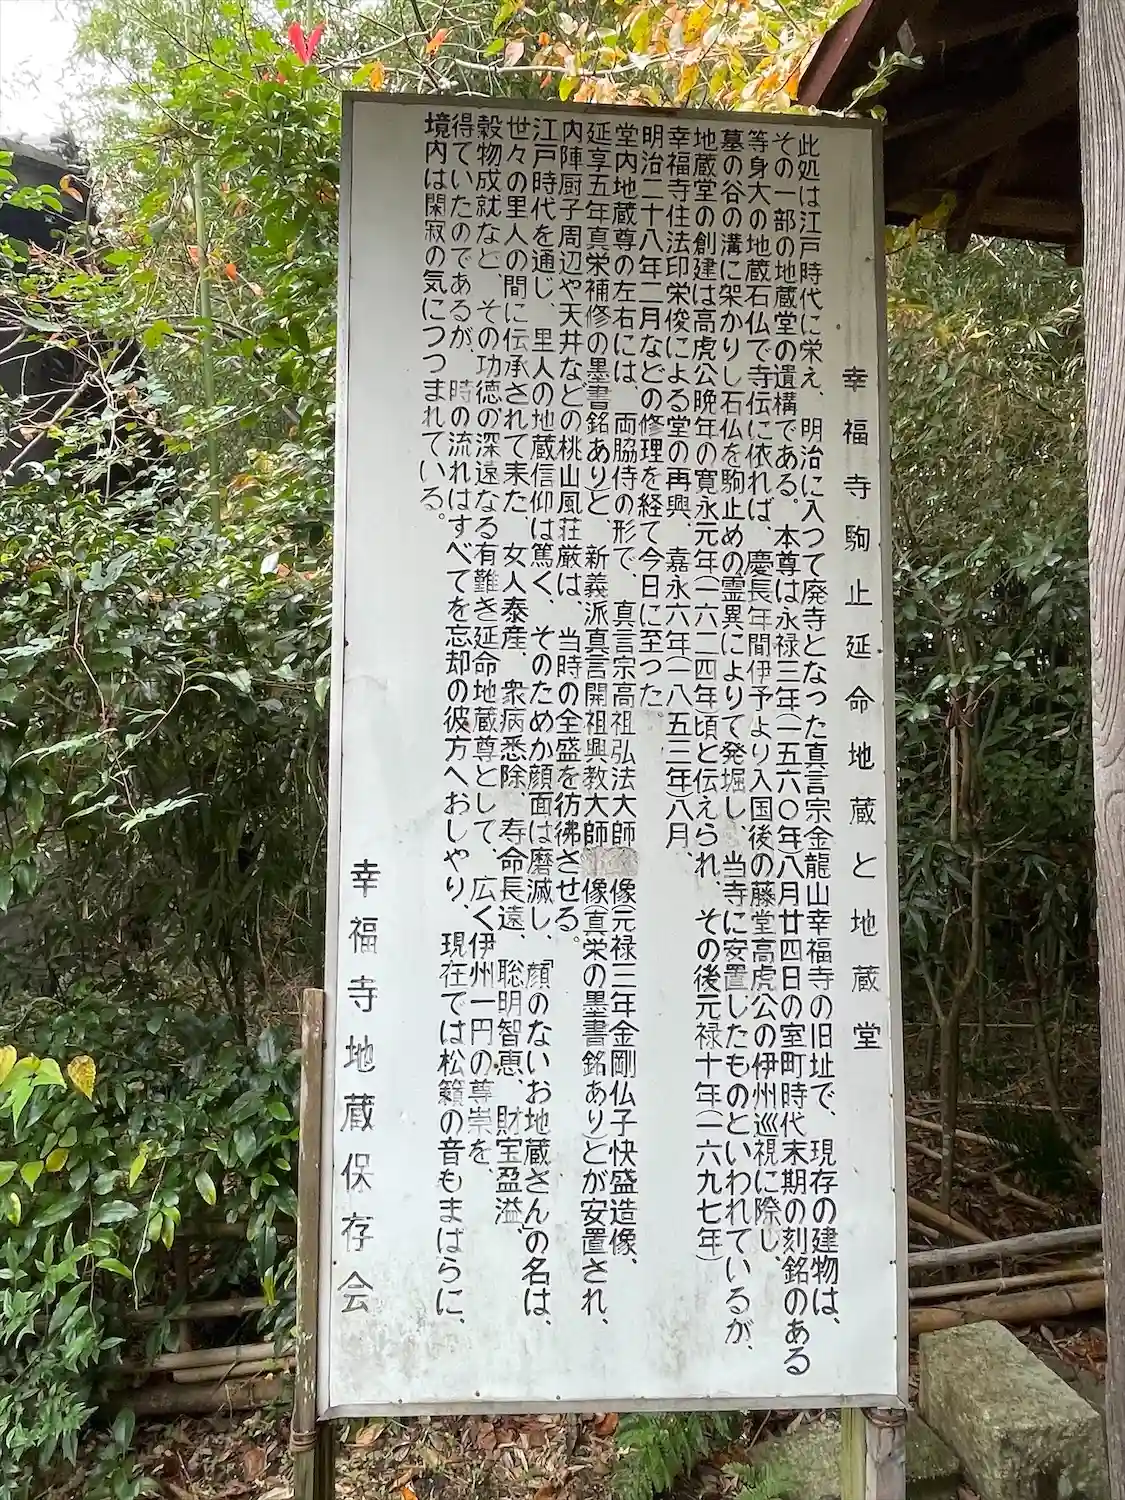 幸福寺駒止延命地蔵と地蔵堂
此処は江戸時代に栄え、明治に入つて廃寺となった真言宗金龍山幸福寺の旧址で、現存の建物は、
その一部の地蔵堂の遺構である。本尊は永禄三年(一五六〇年)八月廿四日の室町時代末期の刻銘のある
等身大の地蔵石仏で寺伝に依れば、慶長年間伊予より入国後の藤堂高虎公の伊州巡視に際し、
墓の谷の溝に架かりし石仏を駒止めの霊異によりて発堀し、当寺に安置したものといわれているが、
地蔵堂の創建は高虎公晩年の寛永元年(一六二四年頃と伝えられ、その後元禄十年(一六九七年)
幸福寺住法印栄俊による堂の再興、嘉永六年(一八五三年)八月、
明治二十八年二月などの修理を経て今日に至った。
堂内地蔵尊の左右には、両脇侍の形で、真言宗高祖弘法大師像元禄三年金剛仏子快盛造像、
延享五年真栄補修の墨書銘ありと、新義派真言開祖興教大師像(真栄の墨書銘あり)とが安置され、
内陣厨子周辺や天井などの桃山風荘厳は、当時の全盛を彷彿させる。
江戸時代を通じ、里人の地蔵信仰は篤く、そのためか顔面は磨滅し、「顔のないお地蔵さん」の名は、
世々の里人の間に伝承されて来た、女人泰産、衆病悉除、寿命長遠、聡明智恵、財宝盈溢、
穀物成就など、その功徳の深遠なる有難き延命地蔵尊として、広く伊州一円の尊崇を、
得ていたのであるが、時の流れはすべてを忘却の彼方へおしやり、現在では松籟の音もまばらに、
境内は閑寂の気につつまれている。
幸福寺地蔵保存会